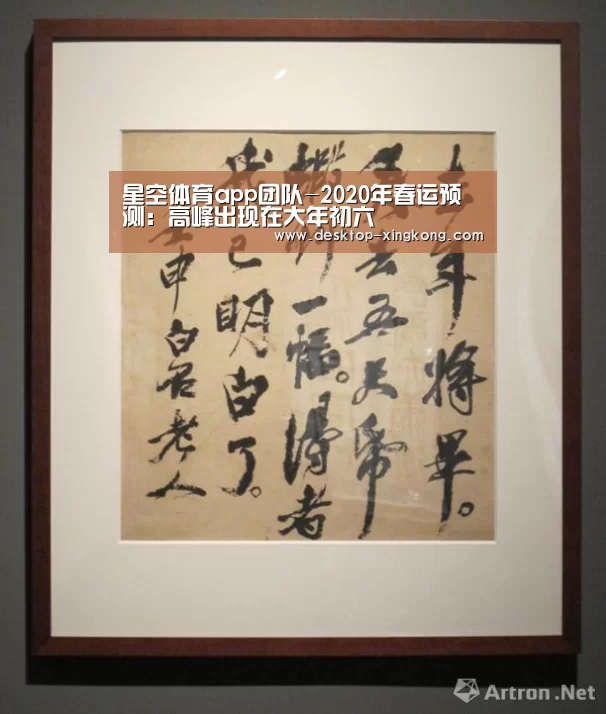 星空体育app团队-2020年春运预
测：高峰出现在大年初六
www.desktop-xingkong.com
去年將畢。
去五尺帋
一幅。得者
已明白了。
申白石老人
Artron.Net